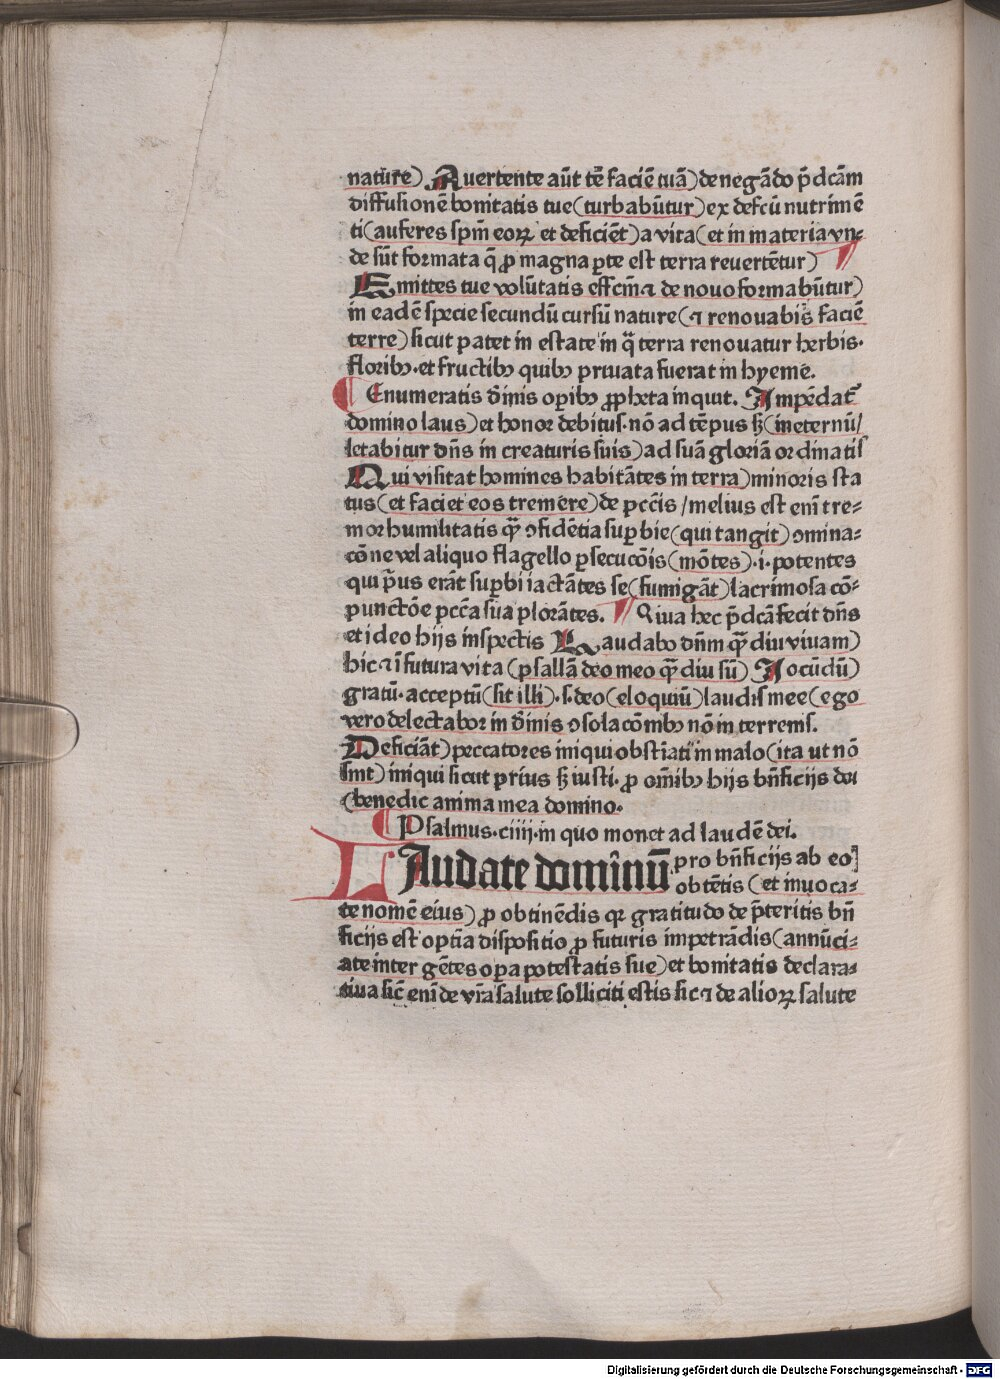 nature) Auertente aūt tē faciē tuā) denegādo p̄dcām
diffusionē bonitatis tue (turbabūtur) ex defcū nutrimē
ti (auferes spm̄ eoꝝ et deficiēt) a vita (et in materia vn-
de sūt formata q̄ ꝓ magna ꝑte est terra reuertētur)
Emittes tue volūtatis effcm̄ ⁊ de nouo formabūtur)
in eadē specie secundū cursū nature (⁊ renouabis faciē
terre) sicut patet in estate in q̄ terra renouatur herbis.
floribꝰ. et fructibꝰ quibꝰ priuata fuerat in hyeme.
Enumeratis diu̅inis oꝑibꝰ ꝓpheta inquit. Impēdat̄
domino laus) et honor debitus. nō ad tēpus sꝫ (in eternū/
letabitur dn̄s in creaturis suis) ad suā gloriā ordinatis
Qui visitat homines habitātes in terra) minoris sta
tus (et faciet eos tremere) de pctīs / melius est enī tre-
mor humilitatis qꝫ̄ ꝯfidētia suꝑbie (qui tangit) ꝯmina-
cōne vel aliquo flagello ꝑsecucōis (mōtes) .i. potentes
qui p̄us erāt suꝑbi iactātes se (fumigāt) lacrimosa cō-
punctōe pctā sua plorātes. Quia hec p̄dcā fecit dn̄s
et ideo hijs inspectis Laudabo dn̄m qꝫ̄ diu viuam)
hic ⁊ ī futura vita (psallā deo meo qꝫ̄ diu sū) Jocūdū)
gratū. acceptū (sit illi) .s. deo (eloquiū) laudis mee (ego
vero delectabor in diu̅inis ꝯsolacōnibꝰ nō in terrenis.
Deficiāt) peccatores iniqui obstīati in malo (ita ut nō
sint) iniqui sicut prius sꝫ iusti. ꝓ om̄ibꝰ hijs bn̄ficijs dei
(benedic anima mea domino.
Psalmus. ciiij. in quo monet ad laudē dei.
LAudate dominū pro bn̄ficijs ab eo
obtētis (et inuoca-
te nomē eius) ꝓ obtinēdis qꝛ gratitudo de p̄teritis bn̄
ficijs est optīa dispositio ꝓ futuris impetrādis (annūci-
ate inter gētes oꝑa potestatis sue) et bonitatis declara-
tiua sic̄ enī de vr̄a salute solliciti estis sic ⁊ de alioꝝ salute
Digitalisierung gefördert durch die Deutsche Forschungsgemeinschaft - DFG